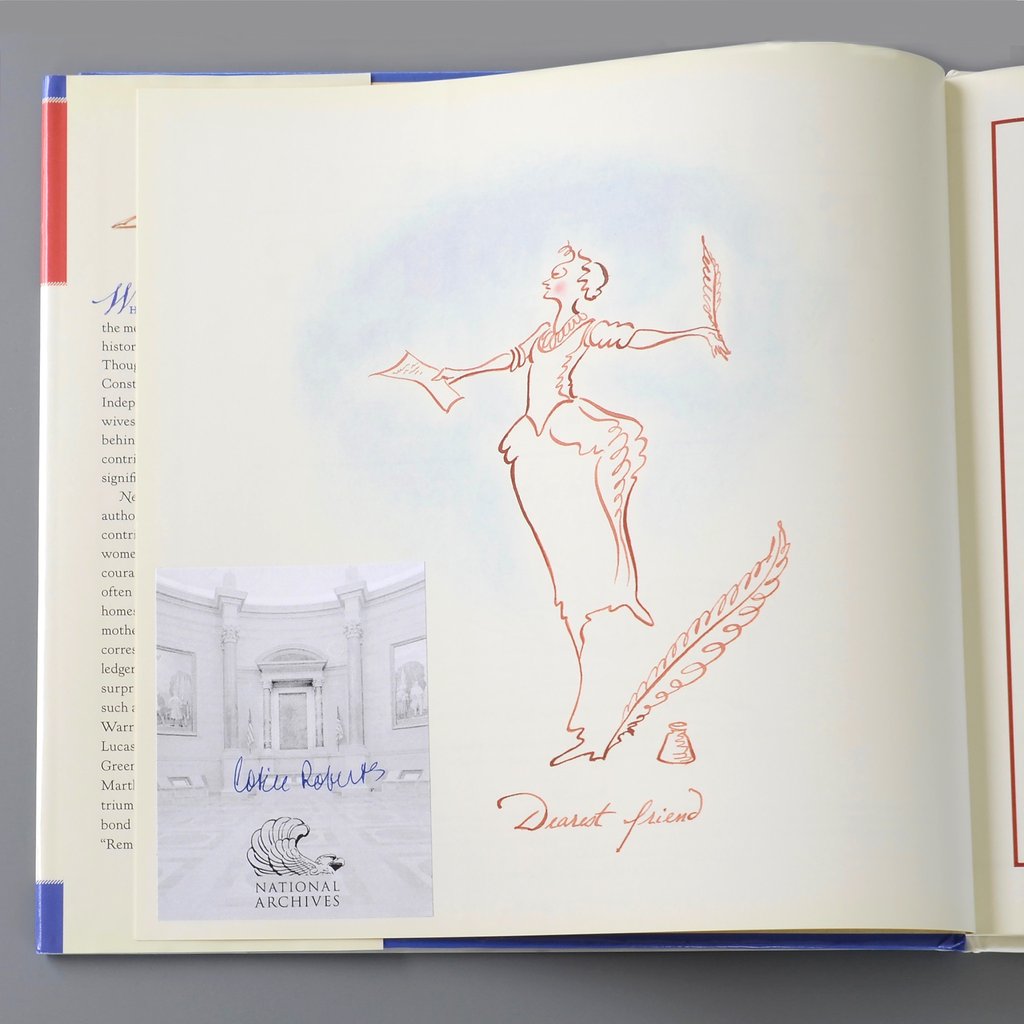 the
Thoug
Const
Indep
wives
behin
contri
signifi
autho
contri
wome
coura
often
homes
mothe
corres
ledger
surpr
such a
Warr
Lucas
Green
Mart
trium
bond
“Rem
Cokie Roberts
NATIONAL
ARCHIVES
Dearest friend